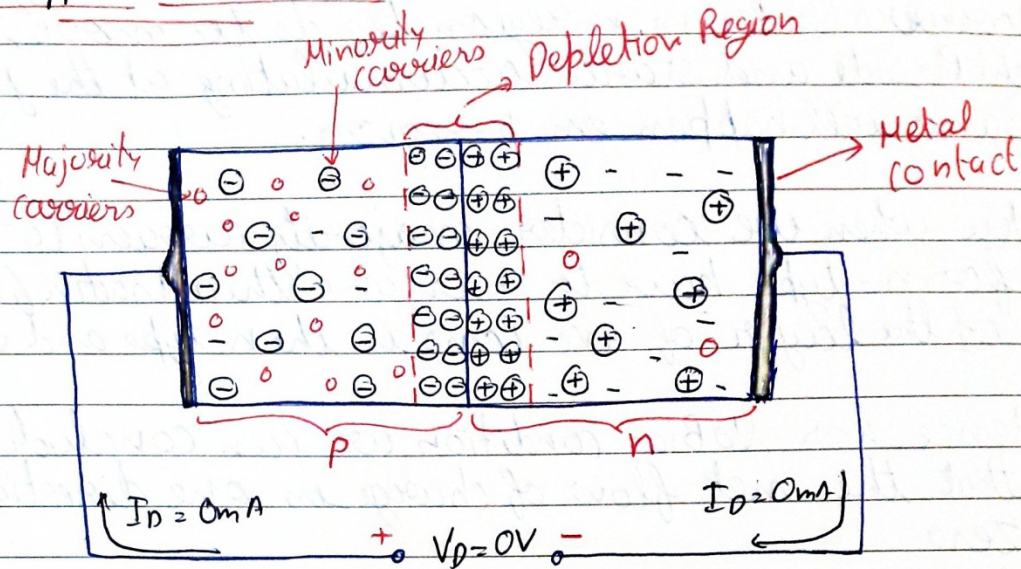 Minority
carriers
Depletion Region
Majority
carriers
Metal
contact
P
n
I_D = 0mA
I_D = 0mA
+ V_D = 0V -